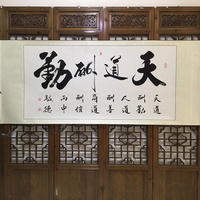 天道酬勤
天道酬勤人道酬善商道酬信丙申